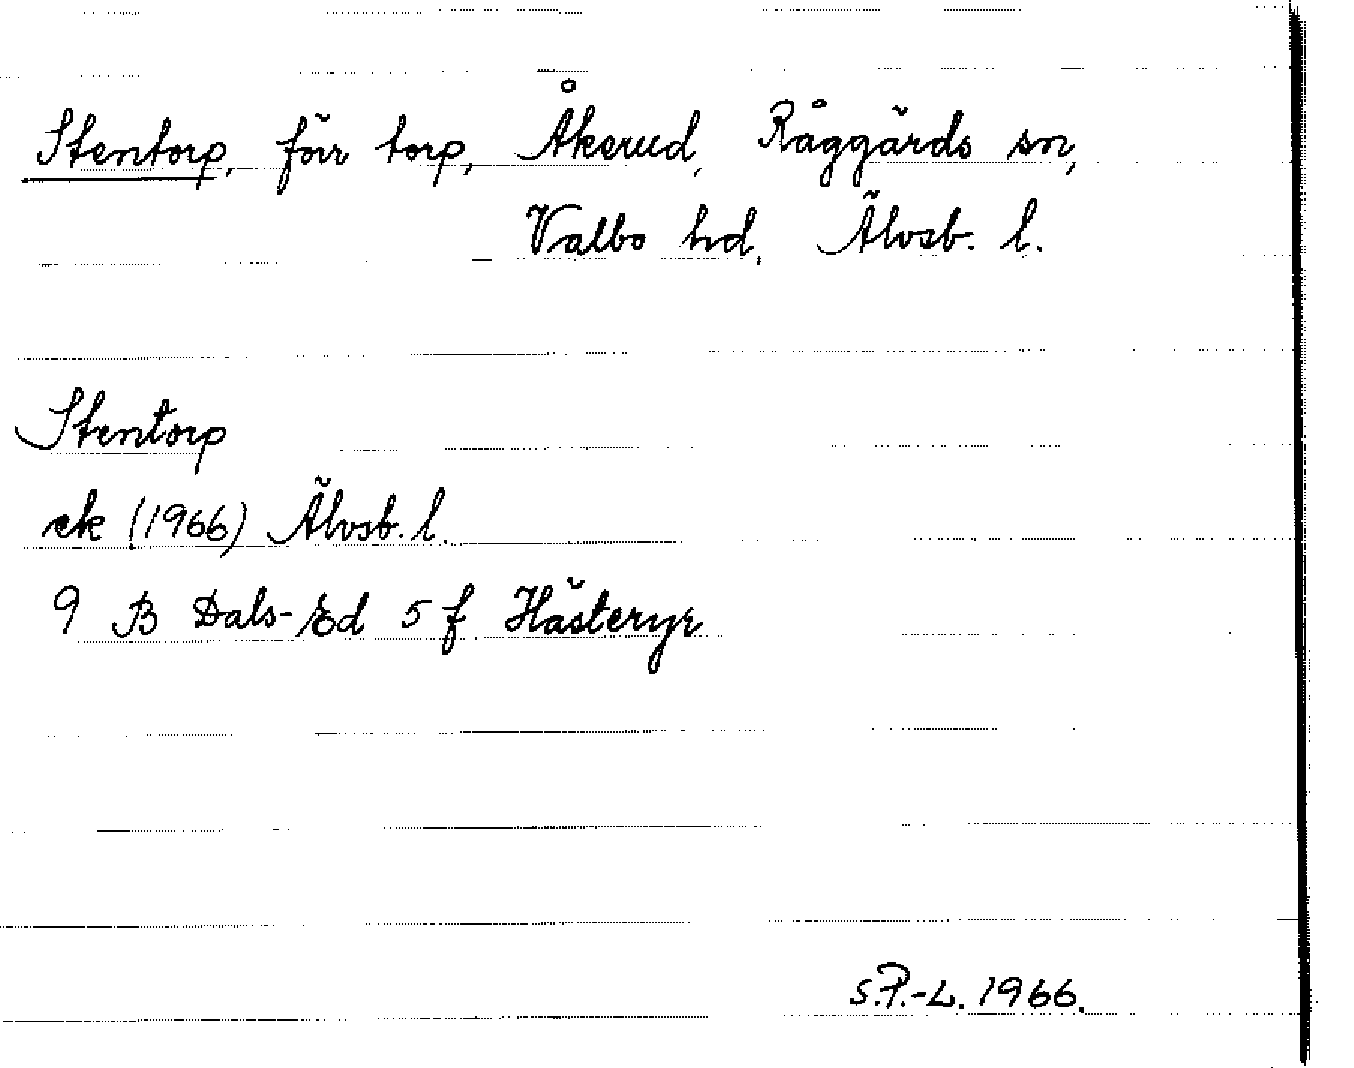 Stentorp, förr torp, Åkerud, Råggärds sn,
Valbo hd, Älvsb. l.
Stentorp
ek (1966) Älvsb. l.
9 B Dals-Ed 5 f Hästeryr
S.P.-L. 1966.